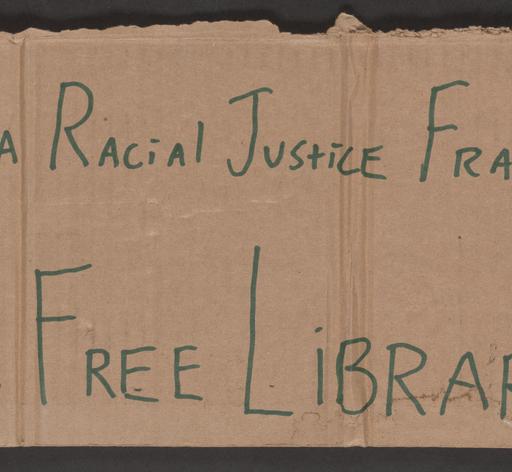 A Racial Justice Fra
Free Librar